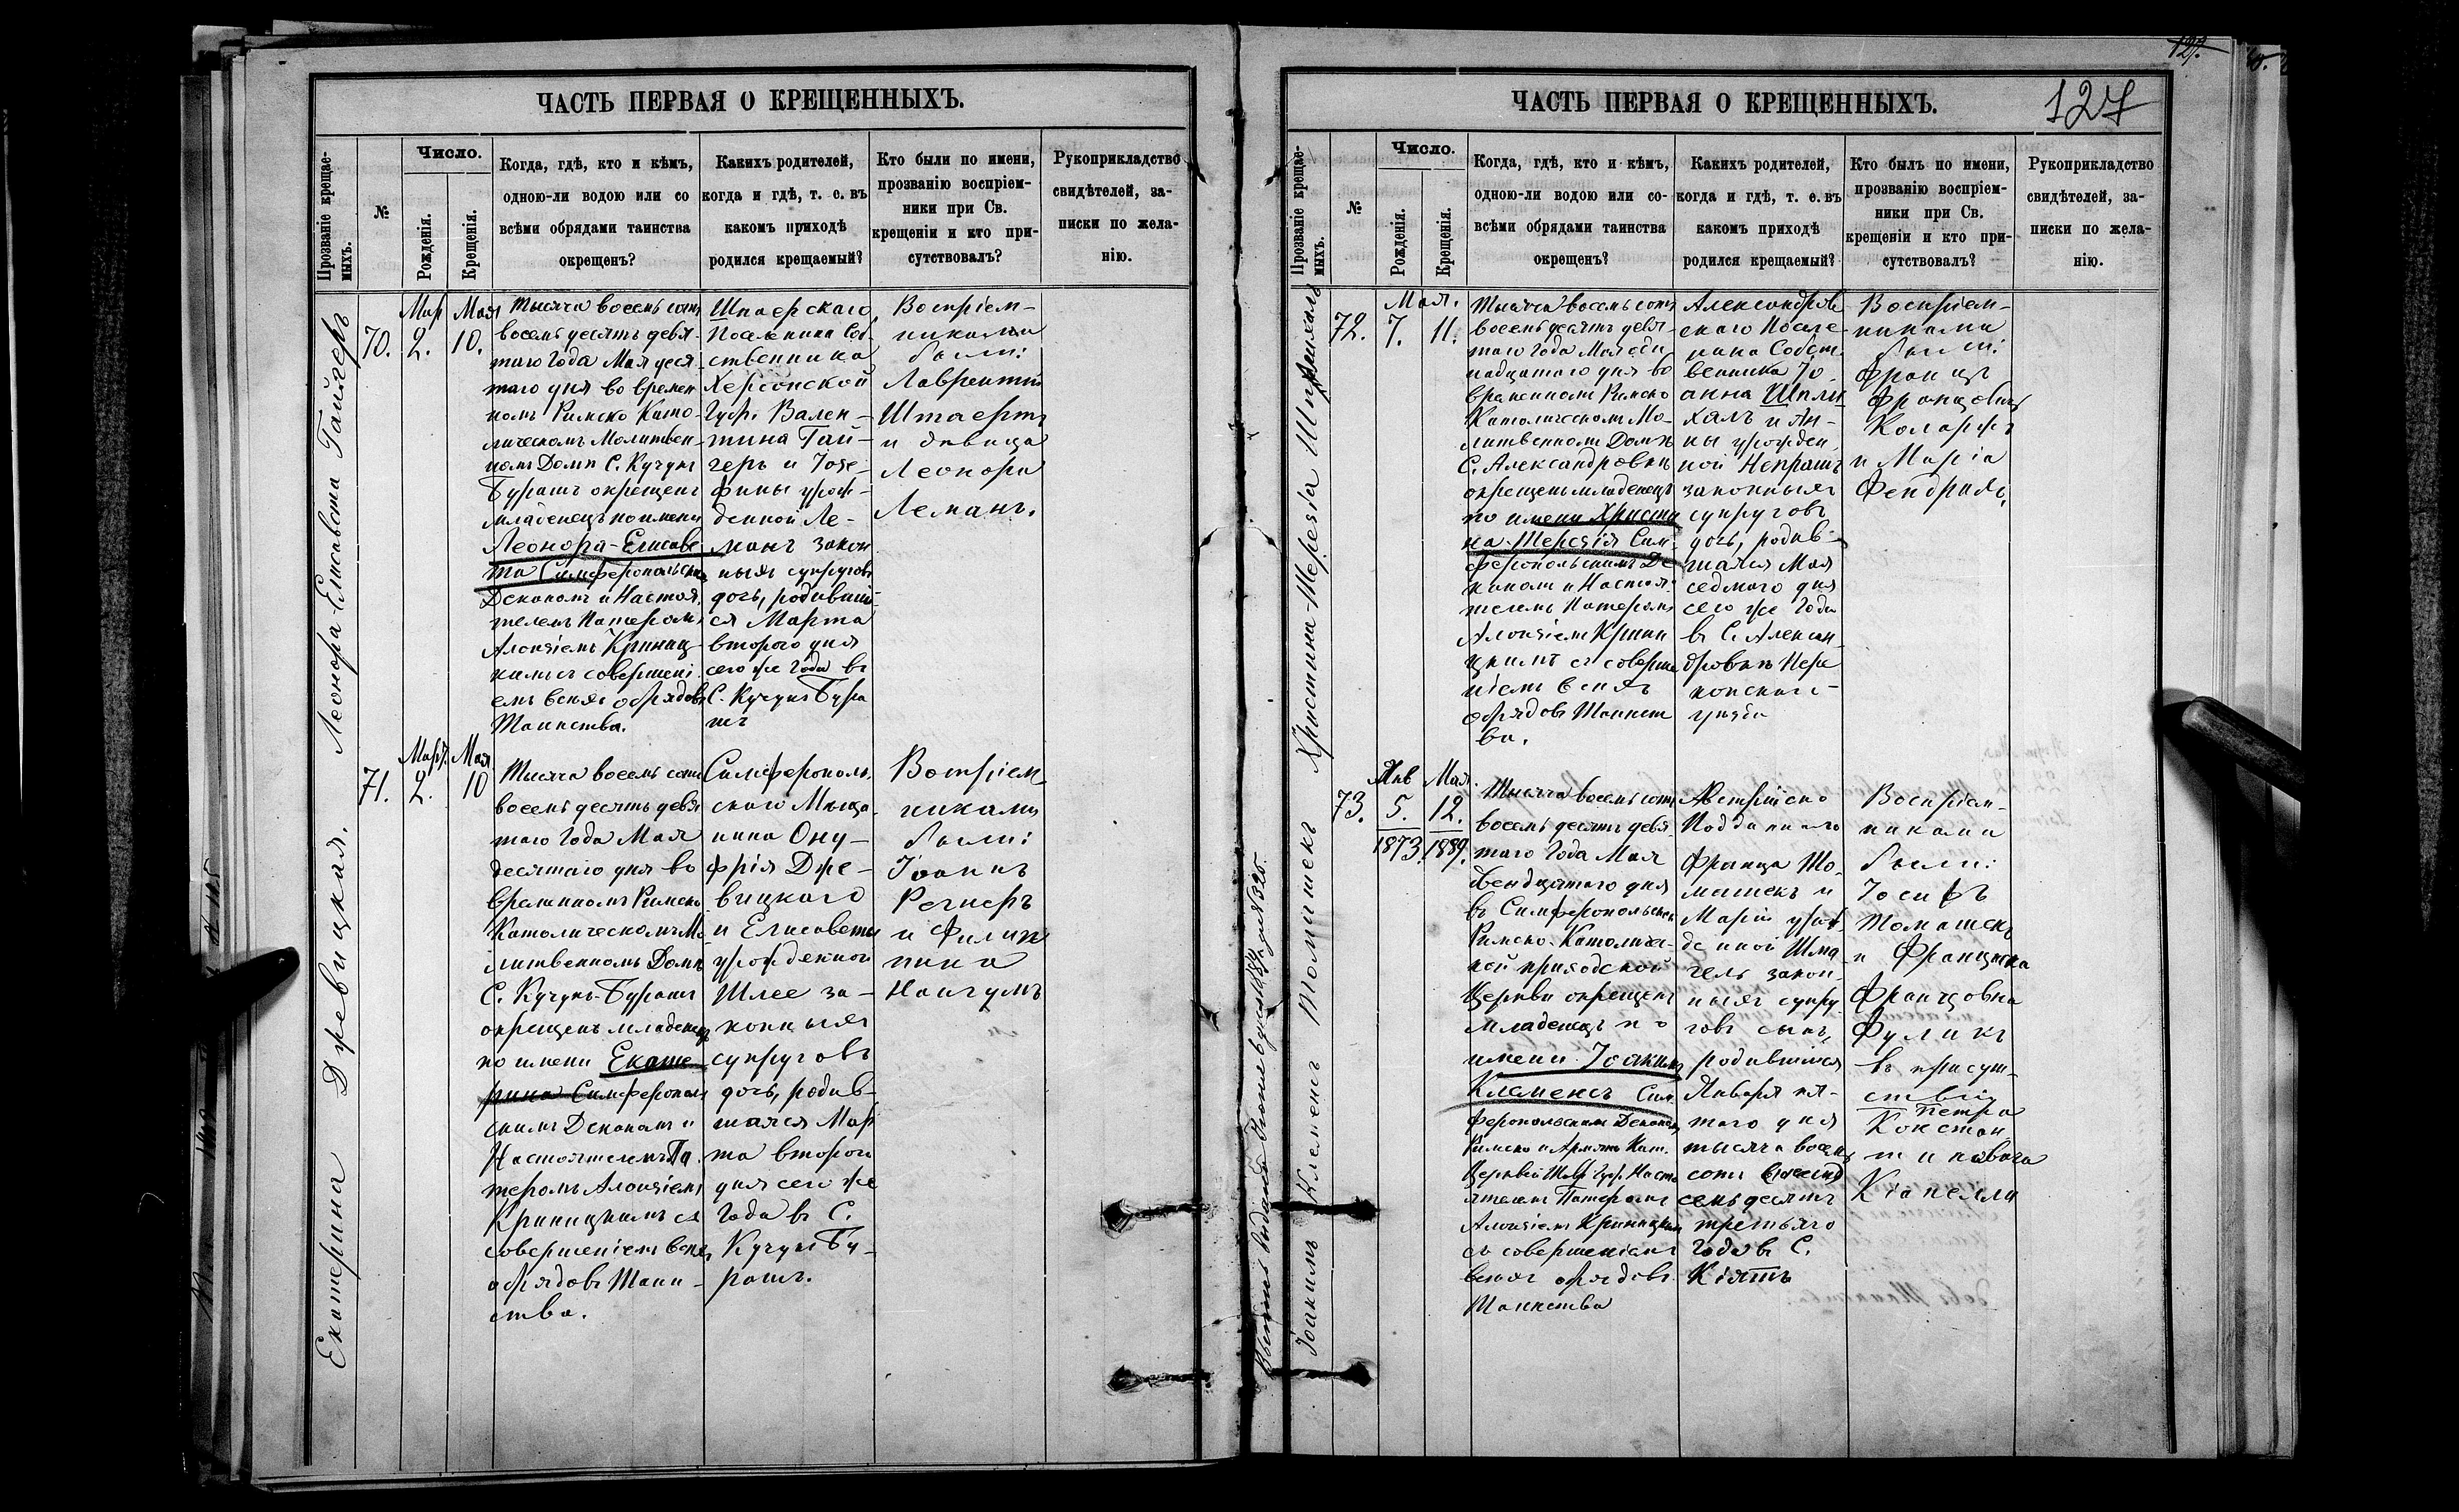 ЧАСТЬ ПЕРВАЯ О КРЕЩЕННЫХЪ.
Прозваніе крещае-
мыхъ.
№
Число.
Рожденія.
Крещенія.
Когда, гдѣ, кто и кѣмъ,
одною-ли водою или со
всѣми обрядами таинства
окрещенъ?
Какихъ родителей,
когда и гдѣ, т. е. въ
какомъ приходѣ
родился крещаемый?
Кто были по имени,
прозванію воспріем-
ники при Св.
крещеніи и кто при-
сутствовалъ?
Рукоприкладство
свидѣтелей, за-
писки по жела-
нію.
Леонора-Елисавета Гайгеръ
Мар Мая
70. 2. 10.
Тысяча восемь сотъ
восемьдесятъ девя-
таго Года Мая деся-
таго дня во времен
номъ Римско Като-
лическомъ Молитвен
номъ Домѣ С. Кучукъ
Бурашъ окрещенъ
младенецъ по имени
Леонора-Елисаве
та Симферопольскимъ
Деканомъ и Настоя
телемъ Патеромъ
Алоизіемъ Криниц
кимъ съ совершені
емъ всѣхъ обрядовъ
Таинства.
Шпаерскаго
Поселянина Соб
ственника
Херсонской
Губ. Вален-
тина Гай-
геръ и Іозе-
фины урож-
денной Ле-
манъ закон
ныхъ супруговъ
дочь, родивша
ся Марта
втораго дня
сего же Года въ
С. Кучукъ Бура
шъ
Воспріем-
никами
были:
Лаврентій
Штаертъ
и девица
Леонора
Леманъ.
Екатерина Држевицкая.
Март. Мая
71. 2. 10
Тысяча восемь сотъ
восемьдесятъ девя
таго Года Мая
десятаго дня во
временномъ Римско
Католическомъ Мо
литвенномъ Домѣ
С. Кучукъ-Бурашъ
окрещенъ младенецъ
по имени Екате-
рина Симферополь
скимъ Деканомъ и
Настоятелемъ Па
теромъ Алоизіемъ
Криницкимъ съ
совершеніемъ всѣхъ
обрядовъ Таин-
ства.
Симферополь
скаго Мѣща
нина Ону-
фрія Дже-
вицкаго
и Елисаветы
урожденной
Шлее за-
конныхъ
супруговъ
дочь, родив-
шаяся Мар
та втораго
дня сего же
Года въ С.
Кучукъ Бу-
рашъ.
Воспріем
никами
были:
Іоаннъ
Регнеръ
и Филип
пина
Нангумъ
ЧАСТЬ ПЕРВАЯ О КРЕЩЕННЫХЪ.
127
Прозваніе крещае-
мыхъ.
№
Число.
Рожденія.
Крещенія.
Когда, гдѣ, кто и кѣмъ,
одною-ли водою или со-
всѣми обрядами таинства
окрещенъ?
Какихъ родителей,
когда и гдѣ, т. е. въ
какомъ приходѣ
родился крещаемый?
Кто былъ по имени,
прозванію воспріем-
ники при Св.
крещеніи и кто при-
сутствовалъ?
Рукоприкладство
свидѣтелей, за-
писки по жела-
нію.
Христина-Терезія
Мая.
72. 7. 11.
Тысяча восемь сотъ
восемьдесятъ девя-
таго Года Мая оди
надцатаго дня во
временномъ Римско
Католическомъ Мо-
литвенномъ Домѣ
С. Александровкѣ
окрещенъ младенецъ
по имени Христи
на-Терезія Сим-
феропольскимъ Де
каномъ и Настоя-
телемъ Патеромъ
Алоизіемъ Крини
цкимъ съ соверше
ніемъ всѣхъ
обрядовъ Таинст
ва.
Александров
скаго Поселя-
нина Собст
венника Іо
анна Шпли
халъ и Ан-
ны урожден
ной Непрашъ
законныхъ
супруговъ
дочь, родив-
шаяся Мая
седмаго дня
сего же Года
въ С. Алексан
дровкѣ Пере
копскаго
уѣзда
Воспріем-
никами
были:
Францъ
Францовичъ
Коларжъ
и Марія
Фендрихъ
Іоакимъ Клеменсъ Томашекъ
Янв Мая
73. 5. 12.
1873. 1889.
Тысяча восемь сотъ
восемьдесятъ девя
таго Года Мая
двенадцатаго дня
въ Симферопольской
Римско-Католиче-
кой приходской
Церкви окрещенъ
младенецъ по
имени Іоакимъ
Клеменсъ Сим
феропольскимъ Деканомъ
Римско и Армяно Кат.
Церквей Тав. Губ. Насто
ятелемъ Патеромъ
Алоизіемъ Криницкимъ
съ совершеніемъ
всѣхъ обрядовъ
Таинства
Австрійско
Подданнаго
Франца То-
машекъ и
Маріи урож
денной Шма
гель закон-
ныхъ супру
говъ сынъ,
родившійся
Января пя-
таго дня
тысяча восемь
сотъ
семьдесятъ
третьяго
Года въ С.
Кіятъ
Воспріем-
никами
были:
Іосифъ
Томашекъ
и Францишка
Францовна
Фуликъ
въ присут-
ствіи
Петра
Констан
тиновича
Кіапелли